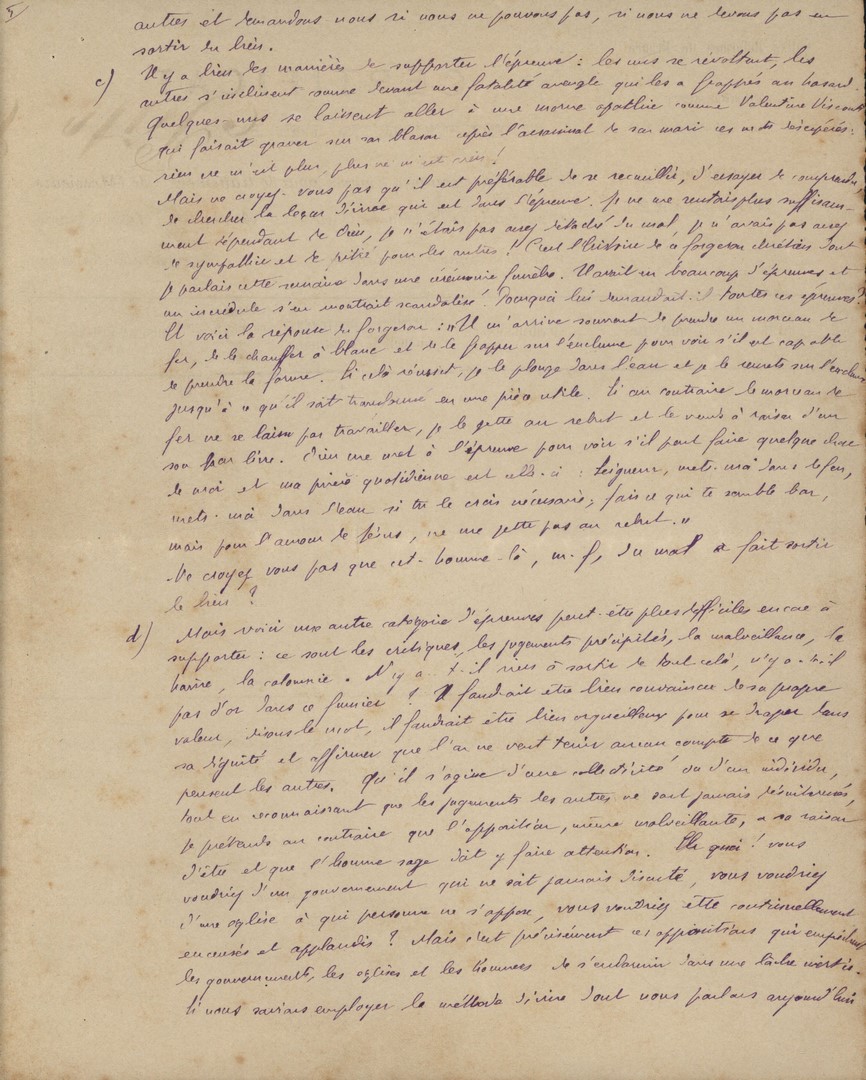 5
autres et demandons nous si nous ne pouvons pas, si nous ne devons pas en
sortir du bien.
c) Il y a bien des manières de supporter l'épreuve : les uns se révoltent, les
autres s'inclinent comme devant une fatalité aveugle qui les a frappés au hasard.
Quelques-uns se laissent aller à une morne apathie comme Valentine Visconti
qui faisait graver sur son blason après l'assassinat de son mari ces mots désespérés :
rien ne m'est plus, plus ne m'est rien !
Mais ne croyez-vous pas qu'il est préférable de se recueillir, d'essayer de comprendre,
de chercher la leçon divine qui est dans l'épreuve. Je ne me sentais plus suffisam-
ment dépendant de Dieu, je n'étais pas assez détaché du mal, je n'avais pas assez
de sympathie et de pitié pour les autres ! C'est l'histoire de ce forgeron chrétien dont
je parlais cette semaine dans une cérémonie funèbre. Il avait eu beaucoup d'épreuves et
un incrédule s'en montrait scandalisé. Pourquoi lui demandait-il toutes ces épreuves ?
Et voici la réponse du forgeron : "Il m'arrive souvent de prendre un morceau de
fer, de le chauffer à blanc et de le frapper sur l'enclume pour voir s'il est capable
de prendre la forme. Si cela réussit, je le plonge dans l'eau et je le remets sur l'enclume
jusqu'à ce qu'il soit transformé en une pièce utile. Si au contraire le morceau de
fer ne se laisse pas travailler, je le jette au rebut et le vends à raison d'un
sou par livre. Dieu me met à l'épreuve pour voir s'il peut faire quelque chose
de moi et ma prière quotidienne est celle-ci : Seigneur, mets-moi dans le feu,
mets-moi dans l'eau si tu le crois nécessaire, fais ce qui te semble bon,
mais pour l'amour de Jésus, ne me jette pas au rebut."
Ne croyez vous pas que cet-homme-là, m. f., du mal a fait sortir
le bien ?
d) Mais voici une autre catégorie d'épreuves peut-être plus difficiles encore à
supporter : ce sont les critiques, les jugements précipités, la malveillance, la
haine, la calomnie. N'y a-t-il rien à sortir de tout cela, n'y a-t-il
pas d'or dans ce fumier ? Il faudrait être bien convaincu de sa propre
valeur, disons le mot, il faudrait être bien orgueilleux pour se draper dans
sa dignité et affirmer que l'on ne veut tenir aucun compte de ce que
pensent les autres. Qu'il s'agisse d'une collectivité ou d'un individu,
tout en reconnaissant que les jugements des autres ne sont jamais désintéressés,
je prétends au contraire que l'opposition, même malveillante, a sa raison
d'être et que l'homme sage doit y faire attention. Eh quoi ! vous
voudriez d'un gouvernement qui ne soit jamais discuté, vous voudriez
d'une église à qui personne ne s'oppose, vous voudriez être continuellement
encensés et applaudis ? Mais c'est précisément ces oppositions qui empêchent
les gouvernements, les églises et les hommes de s'endormir dans une lâche inertie.
Si nous savions employer la méthode divine dont nous parlons aujourd'hui